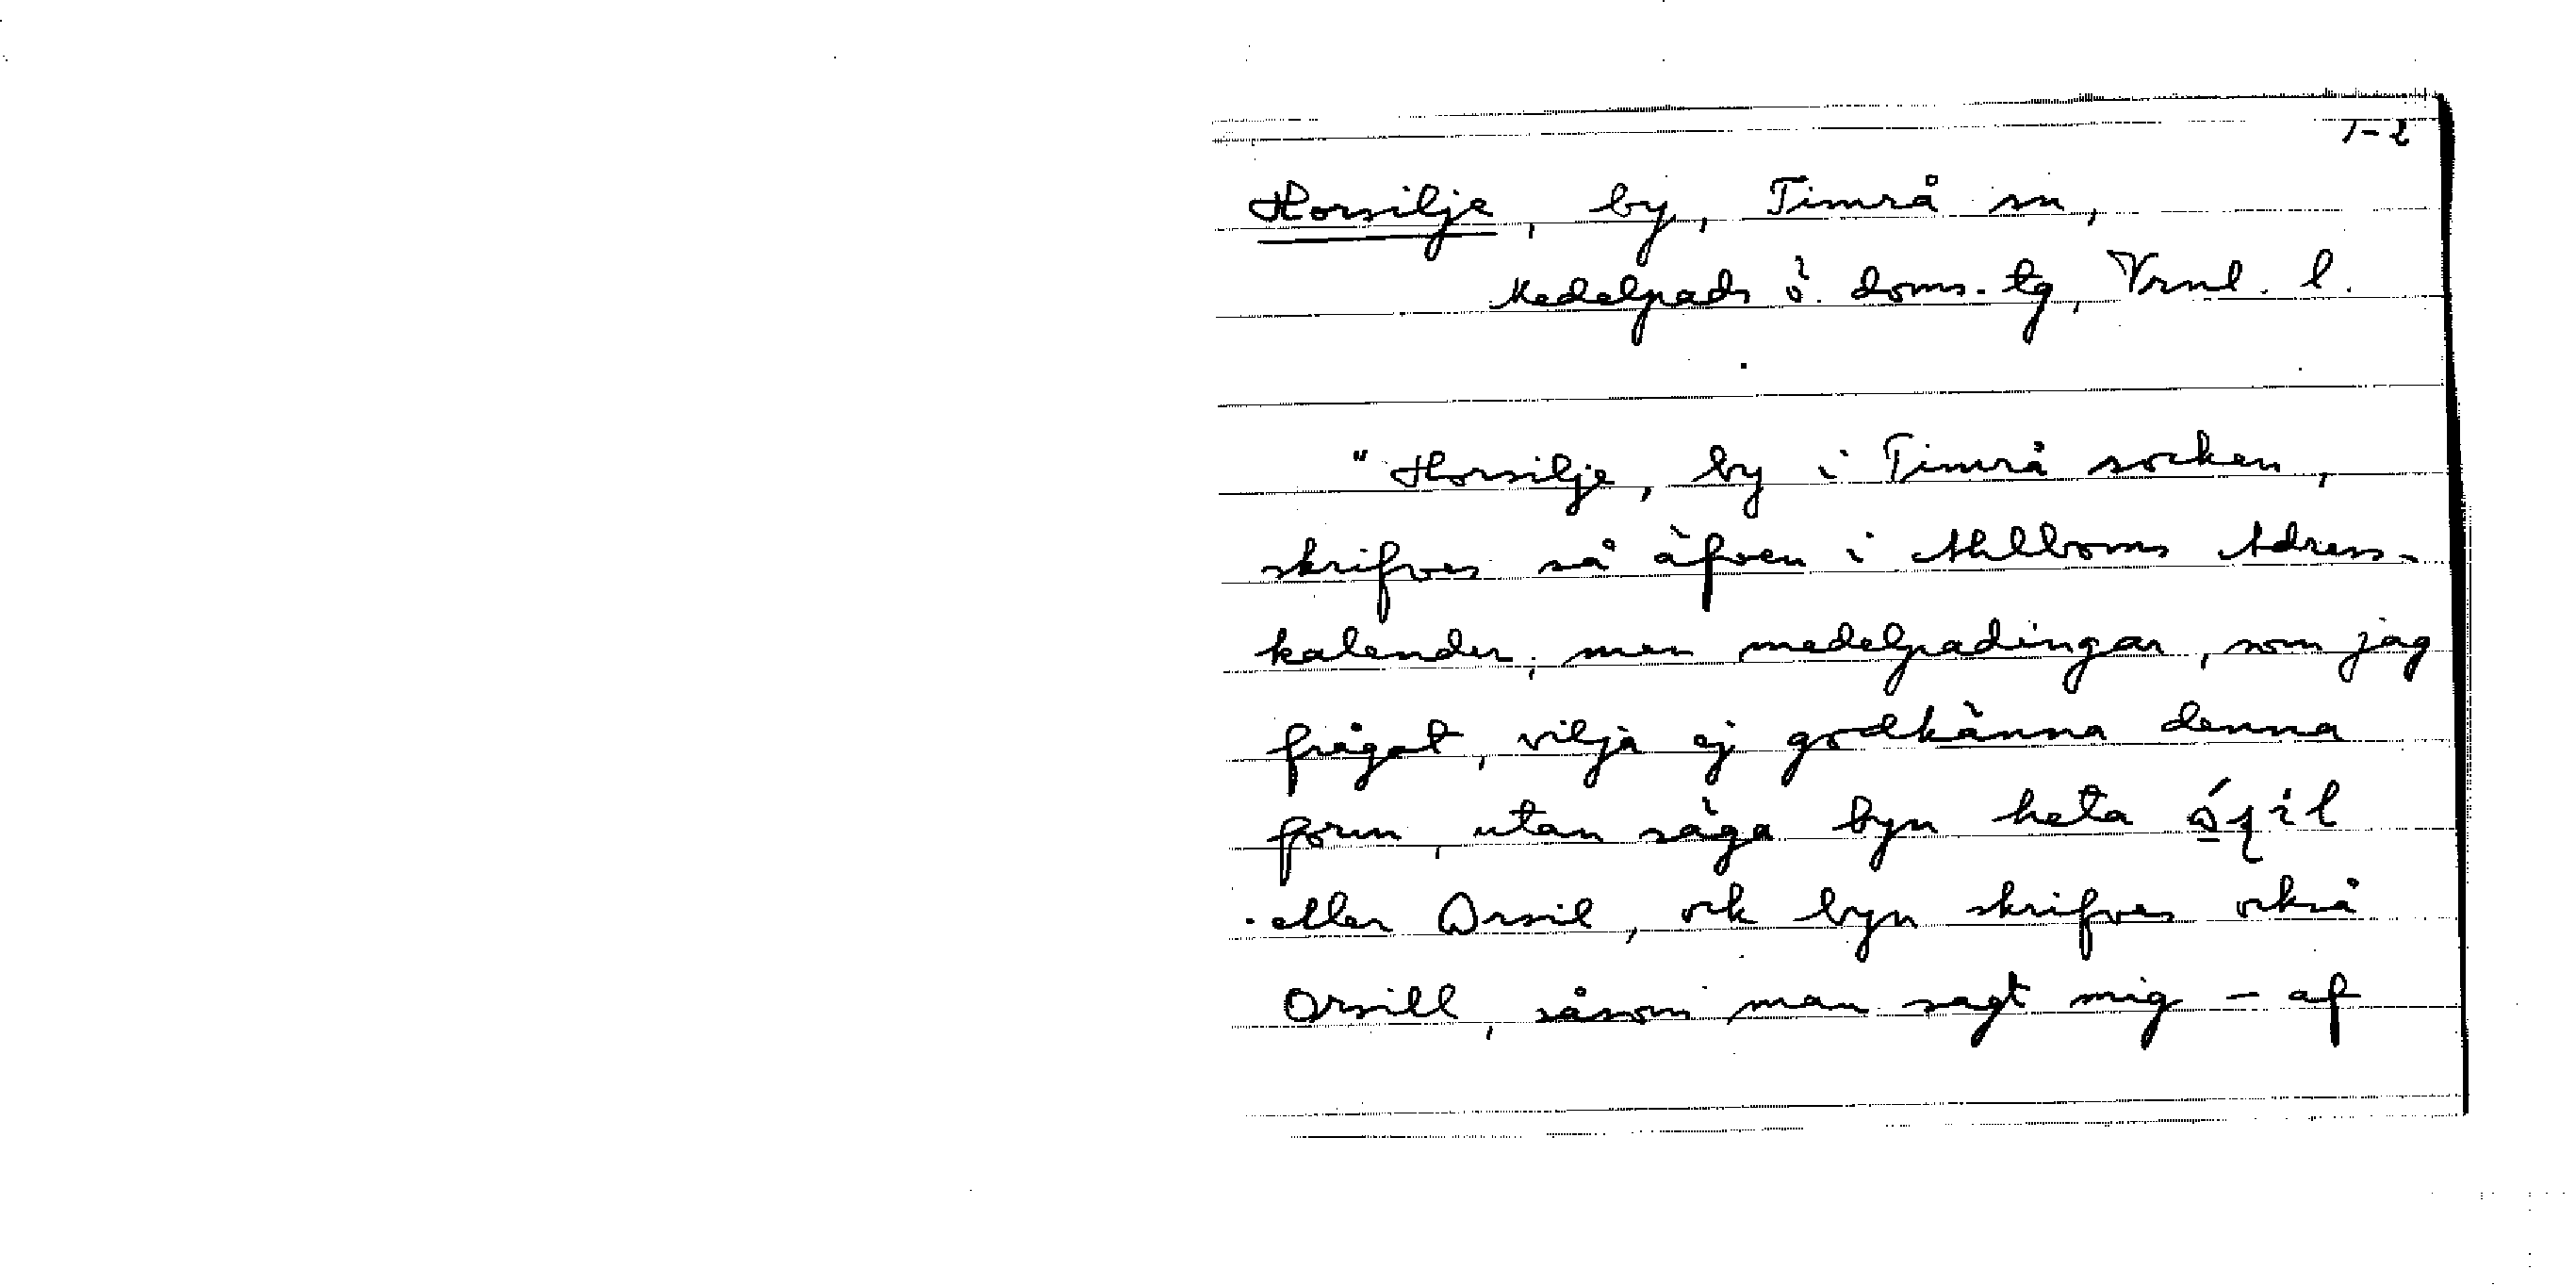 1-2
Horsilje, by, Timrå sn,
Medelpads ö. doms. tg, Vrnl. l.
"Horsilje, by i Timrå socken,
skrifves så äfven i Ahlboms Adress-
kalender, men medelpadingar, som jag
frågat, vilja ej godkänna denna
form, utan säga byn heta
eller Orsil, ock byn skrifves också
Orsill, såsom man sagt mig – af